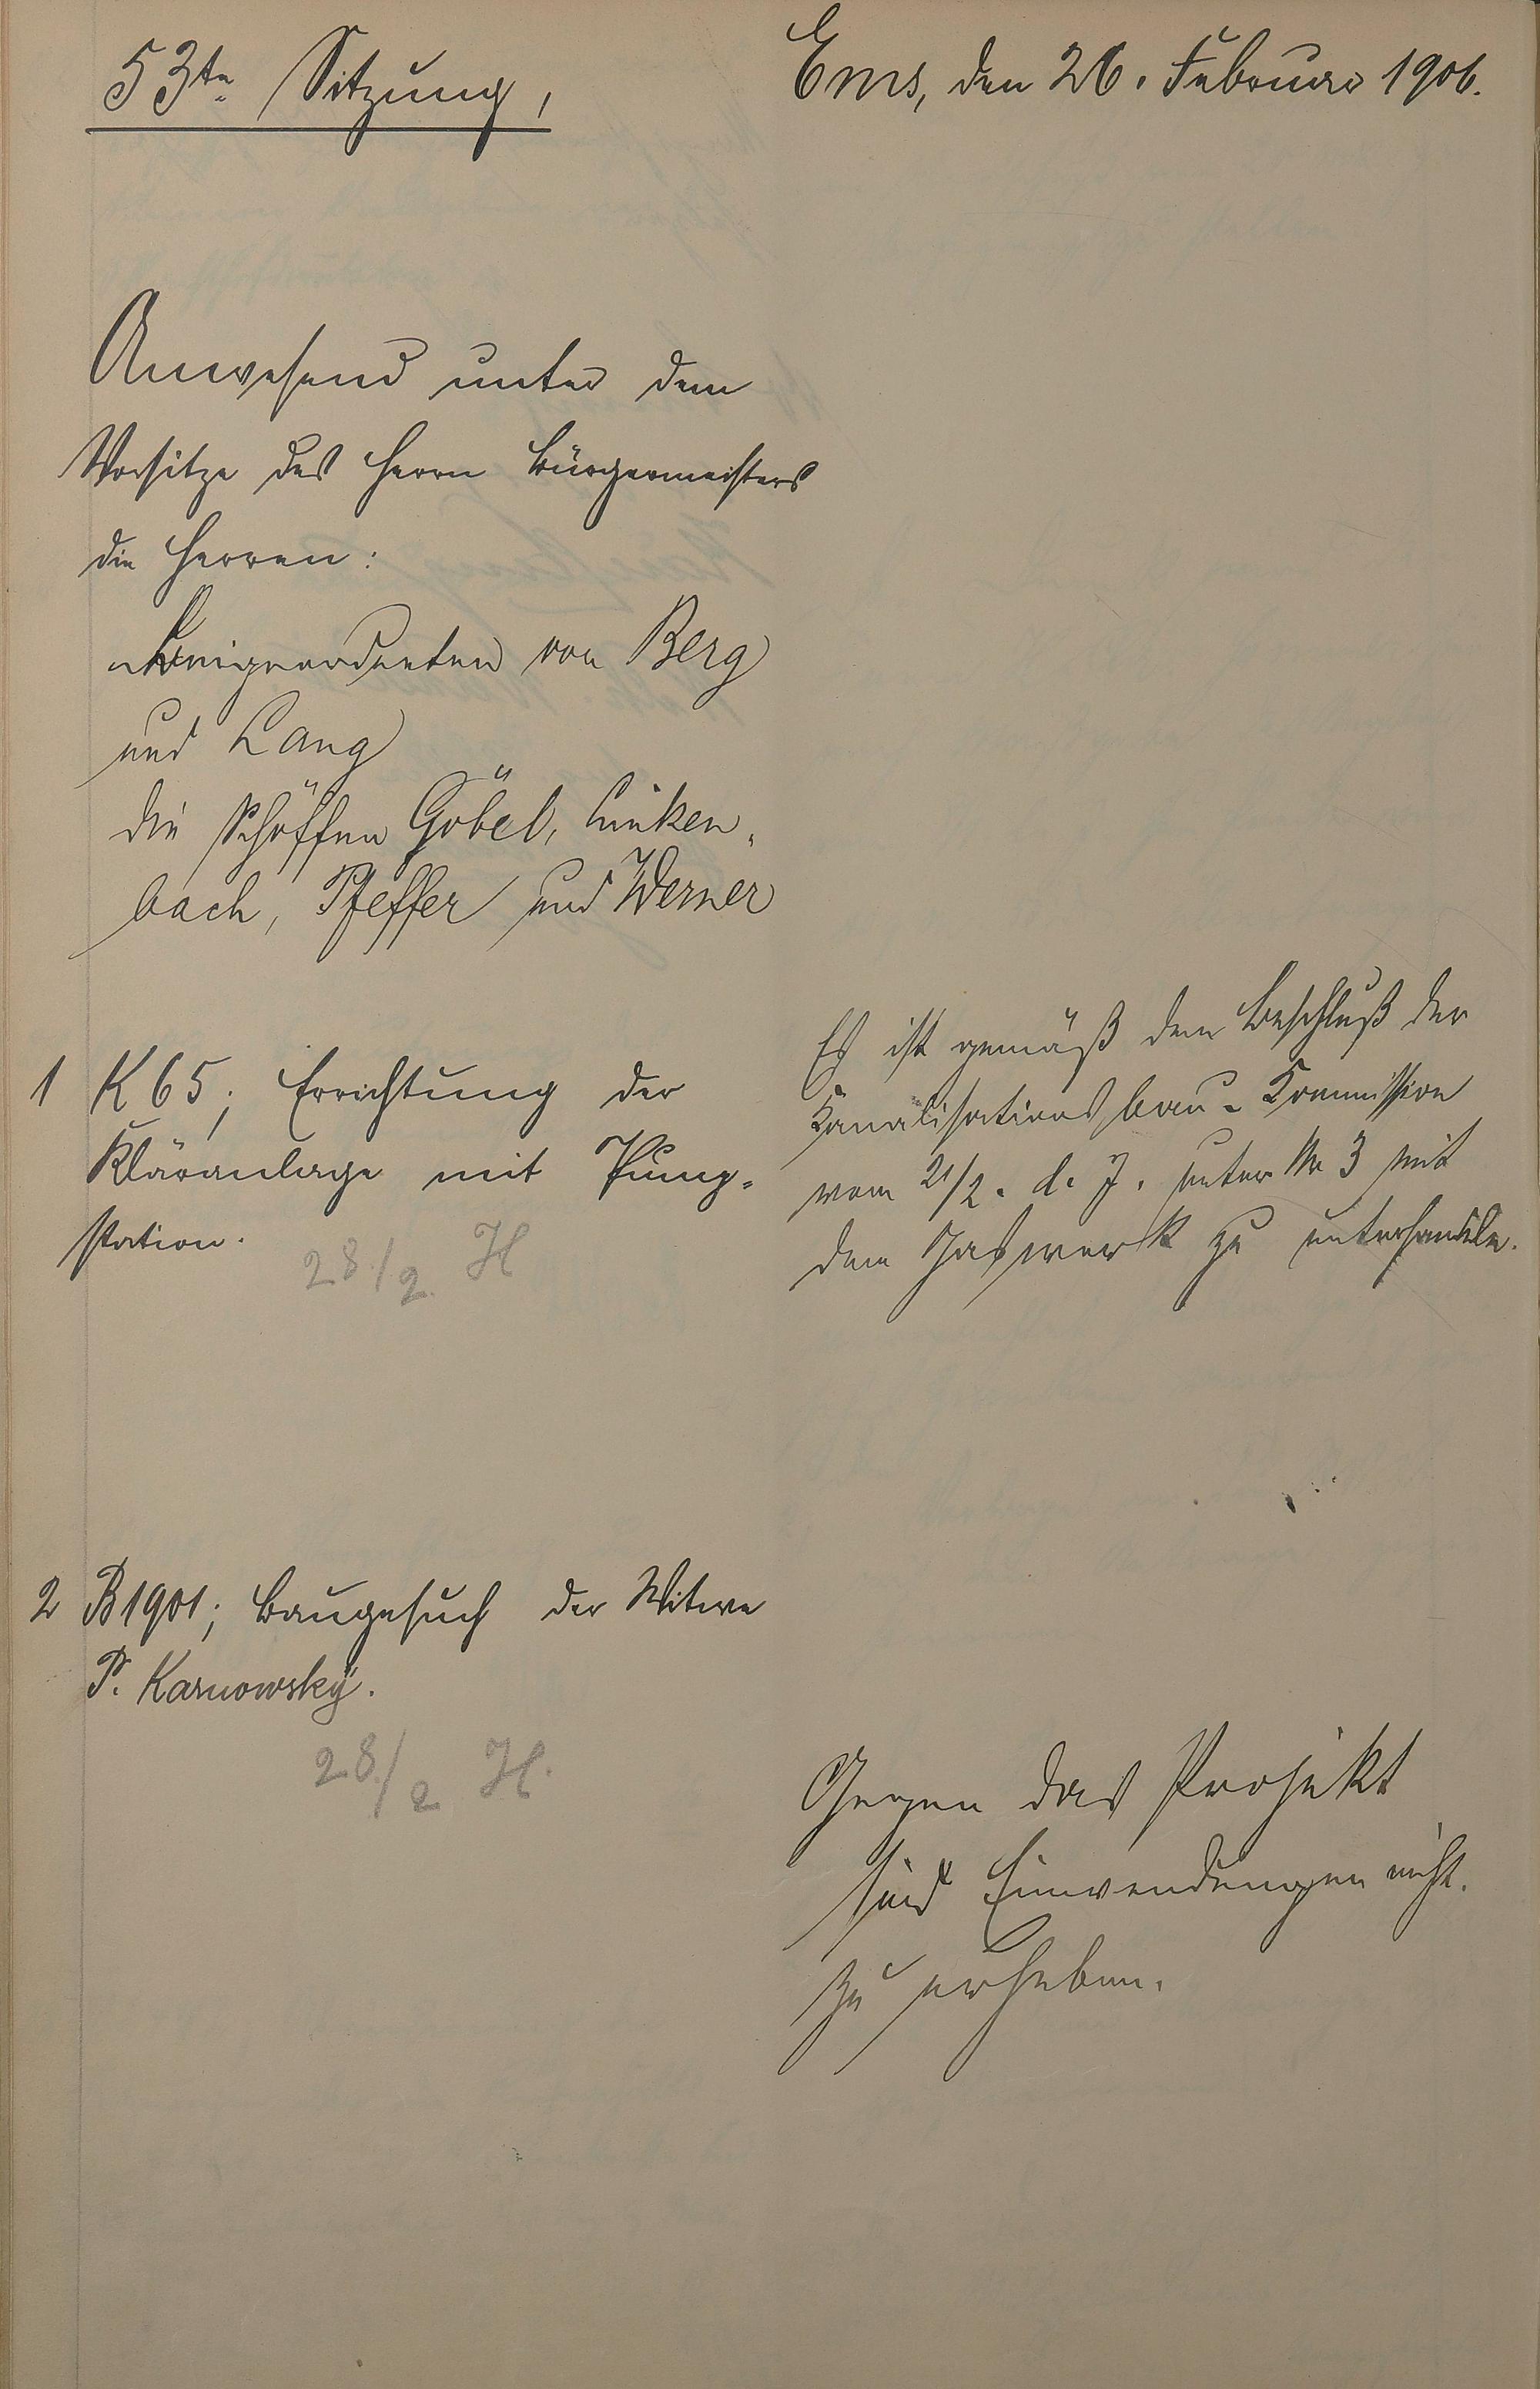 53te Sitzung,
Ems, den 26. Februar 1906.
Anwesend unter dem
Vorsitze des Herrn Bürgermeisters
die Herren:
Beigeordneten von Berg
und Lang
die Schöffen Göbel, Linken-
bach, Pfeffer und Werner
1 K 65; Errichtung der
Kläranlage mit Pump-
station.
28./2. H
Es ist gemäß dem Beschluß der
Kanalisationsbau-Kommission
vom 21/2. d. J. unter Nr 3 mit
dem Gaswerk zu unterhandeln.
2 B 1901; Baugesuch der Witwe
P. Karnowsky.
28./2 H.
Gegen das Projekt
sind Einwendungen nicht
zu erheben.